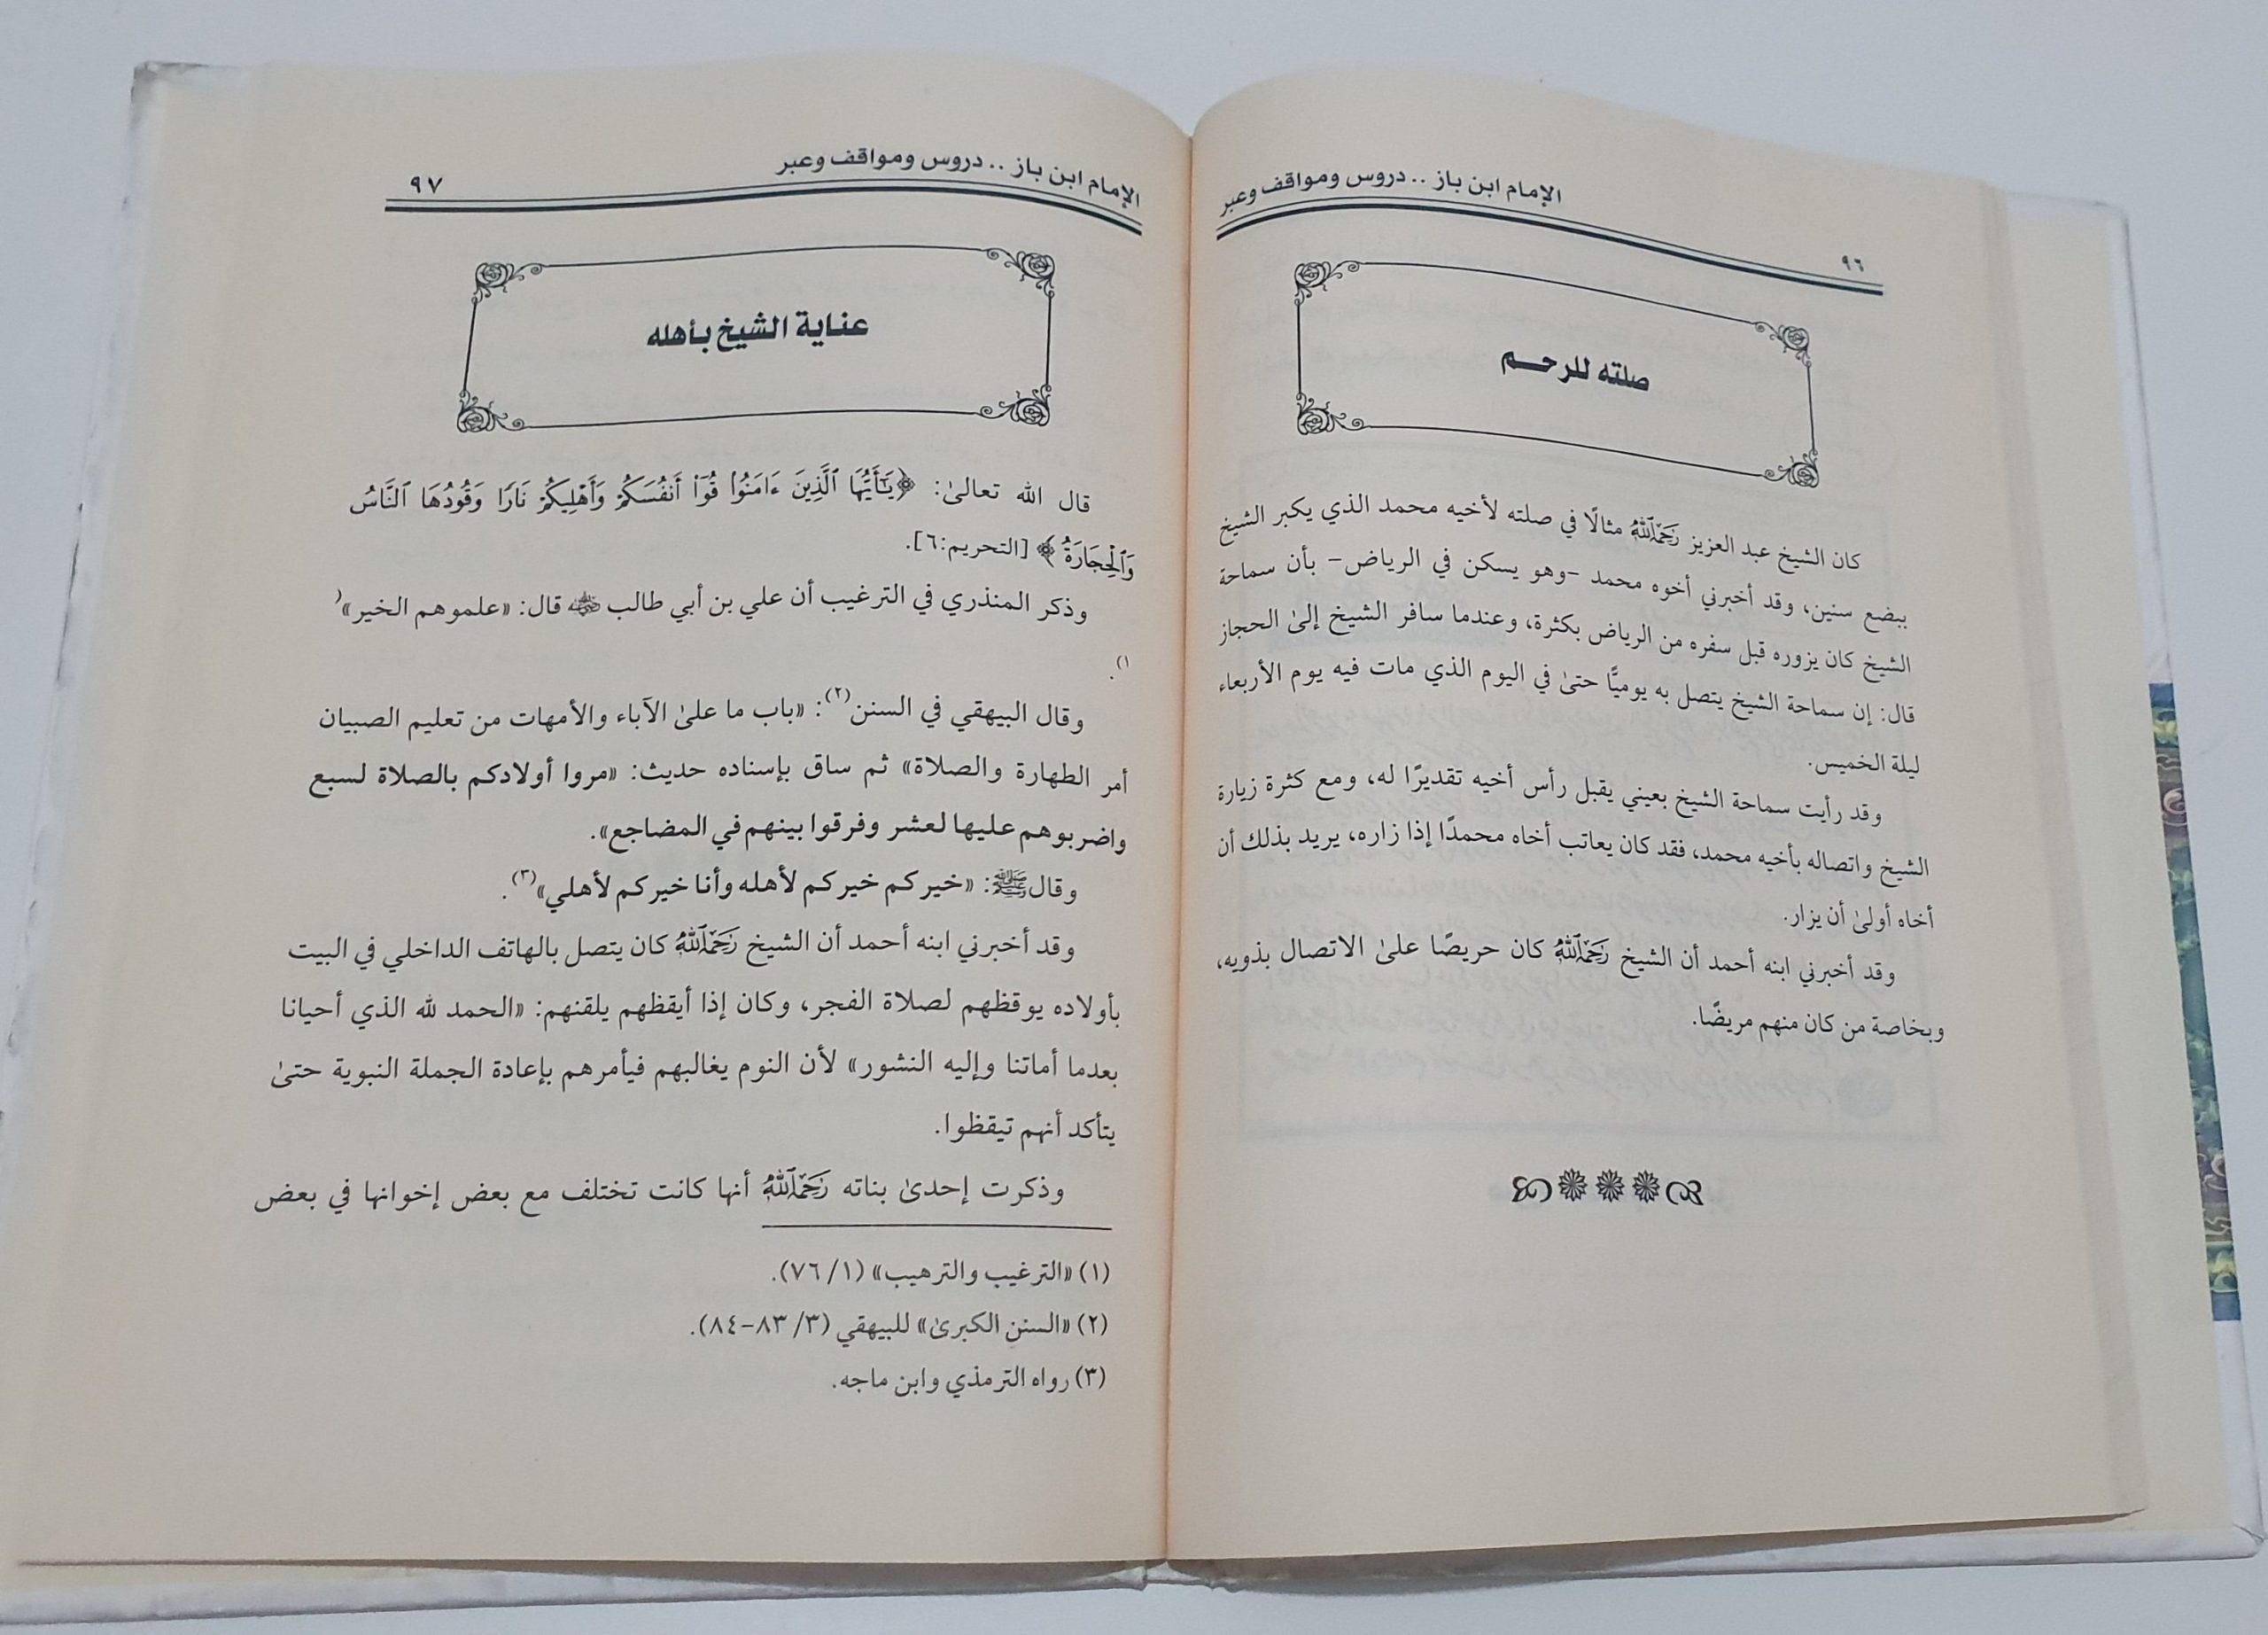 الإمام ابن باز .. دروس ومواقف وعبر
٩٦
صلته للرحـــم
كان الشيخ عبد العزيز رَحِمَهُ اللَّهُ مثالًا في صلته لأخيه محمد الذي يكبر الشيخ
ببضع سنين، وقد أخبرني أخوه محمد -وهو يسكن في الرياض- بأن سماحة
الشيخ كان يزوره قبل سفره من الرياض بكثرة، وعندما سافر الشيخ إلىٰ الحجاز
قال: إن سماحة الشيخ يتصل به يوميًّا حتىٰ في اليوم الذي مات فيه يوم الأربعاء
ليلة الخميس.
وقد رأيت سماحة الشيخ بعيني يقبل رأس أخيه تقديرًا له، ومع كثرة زيارة
الشيخ واتصاله بأخيه محمد، فقد كان يعاتب أخاه محمدًا إذا زاره، يريد بذلك أن
أخاه أولىٰ أن يزار.
وقد أخبرني ابنه أحمد أن الشيخ رَحِمَهُ اللَّهُ كان حريصًا علىٰ الاتصال بذويه،
وبخاصة من كان منهم مريضًا.
الإمام ابن باز .. دروس ومواقف وعبر
٩٧
عناية الشيخ بأهله
قال الله تعالىٰ: ﴿يَٰٓأَيُّهَا ٱلَّذِينَ ءَامَنُوا۟ قُوٓا۟ أَنفُسَكُمْ وَأَهْلِيكُمْ نَارًا وَقُودُهَا ٱلنَّاسُ
وَٱلْحِجَارَةُ﴾ [التحريم:٦].
وذكر المنذري في الترغيب أن علي بن أبي طالب رضي الله عنه قال: «علموهم الخير»(
١).
وقال البيهقي في السنن(٢): «باب ما علىٰ الآباء والأمهات من تعليم الصبيان
أمر الطهارة والصلاة» ثم ساق بإسناده حديث: «مروا أولادكم بالصلاة لسبع
واضربوهم عليها لعشر وفرقوا بينهم في المضاجع».
وقال ﷺ: «خيركم خيركم لأهله وأنا خيركم لأهلي»(٣).
وقد أخبرني ابنه أحمد أن الشيخ رَحِمَهُ اللَّهُ كان يتصل بالهاتف الداخلي في البيت
بأولاده يوقظهم لصلاة الفجر، وكان إذا أيقظهم يلقنهم: «الحمد لله الذي أحيانا
بعدما أماتنا وإليه النشور» لأن النوم يغالبهم فيأمرهم بإعادة الجملة النبوية حتىٰ
يتأكد أنهم تيقظوا.
وذكرت إحدىٰ بناته رَحِمَهُ اللَّهُ أنها كانت تختلف مع بعض إخوانها في بعض
(١) «الترغيب والترهيب» (١/ ٧٦).
(٢) «السنن الكبرىٰ» للبيهقي (٣/ ٨٣-٨٤).
(٣) رواه الترمذي وابن ماجه.